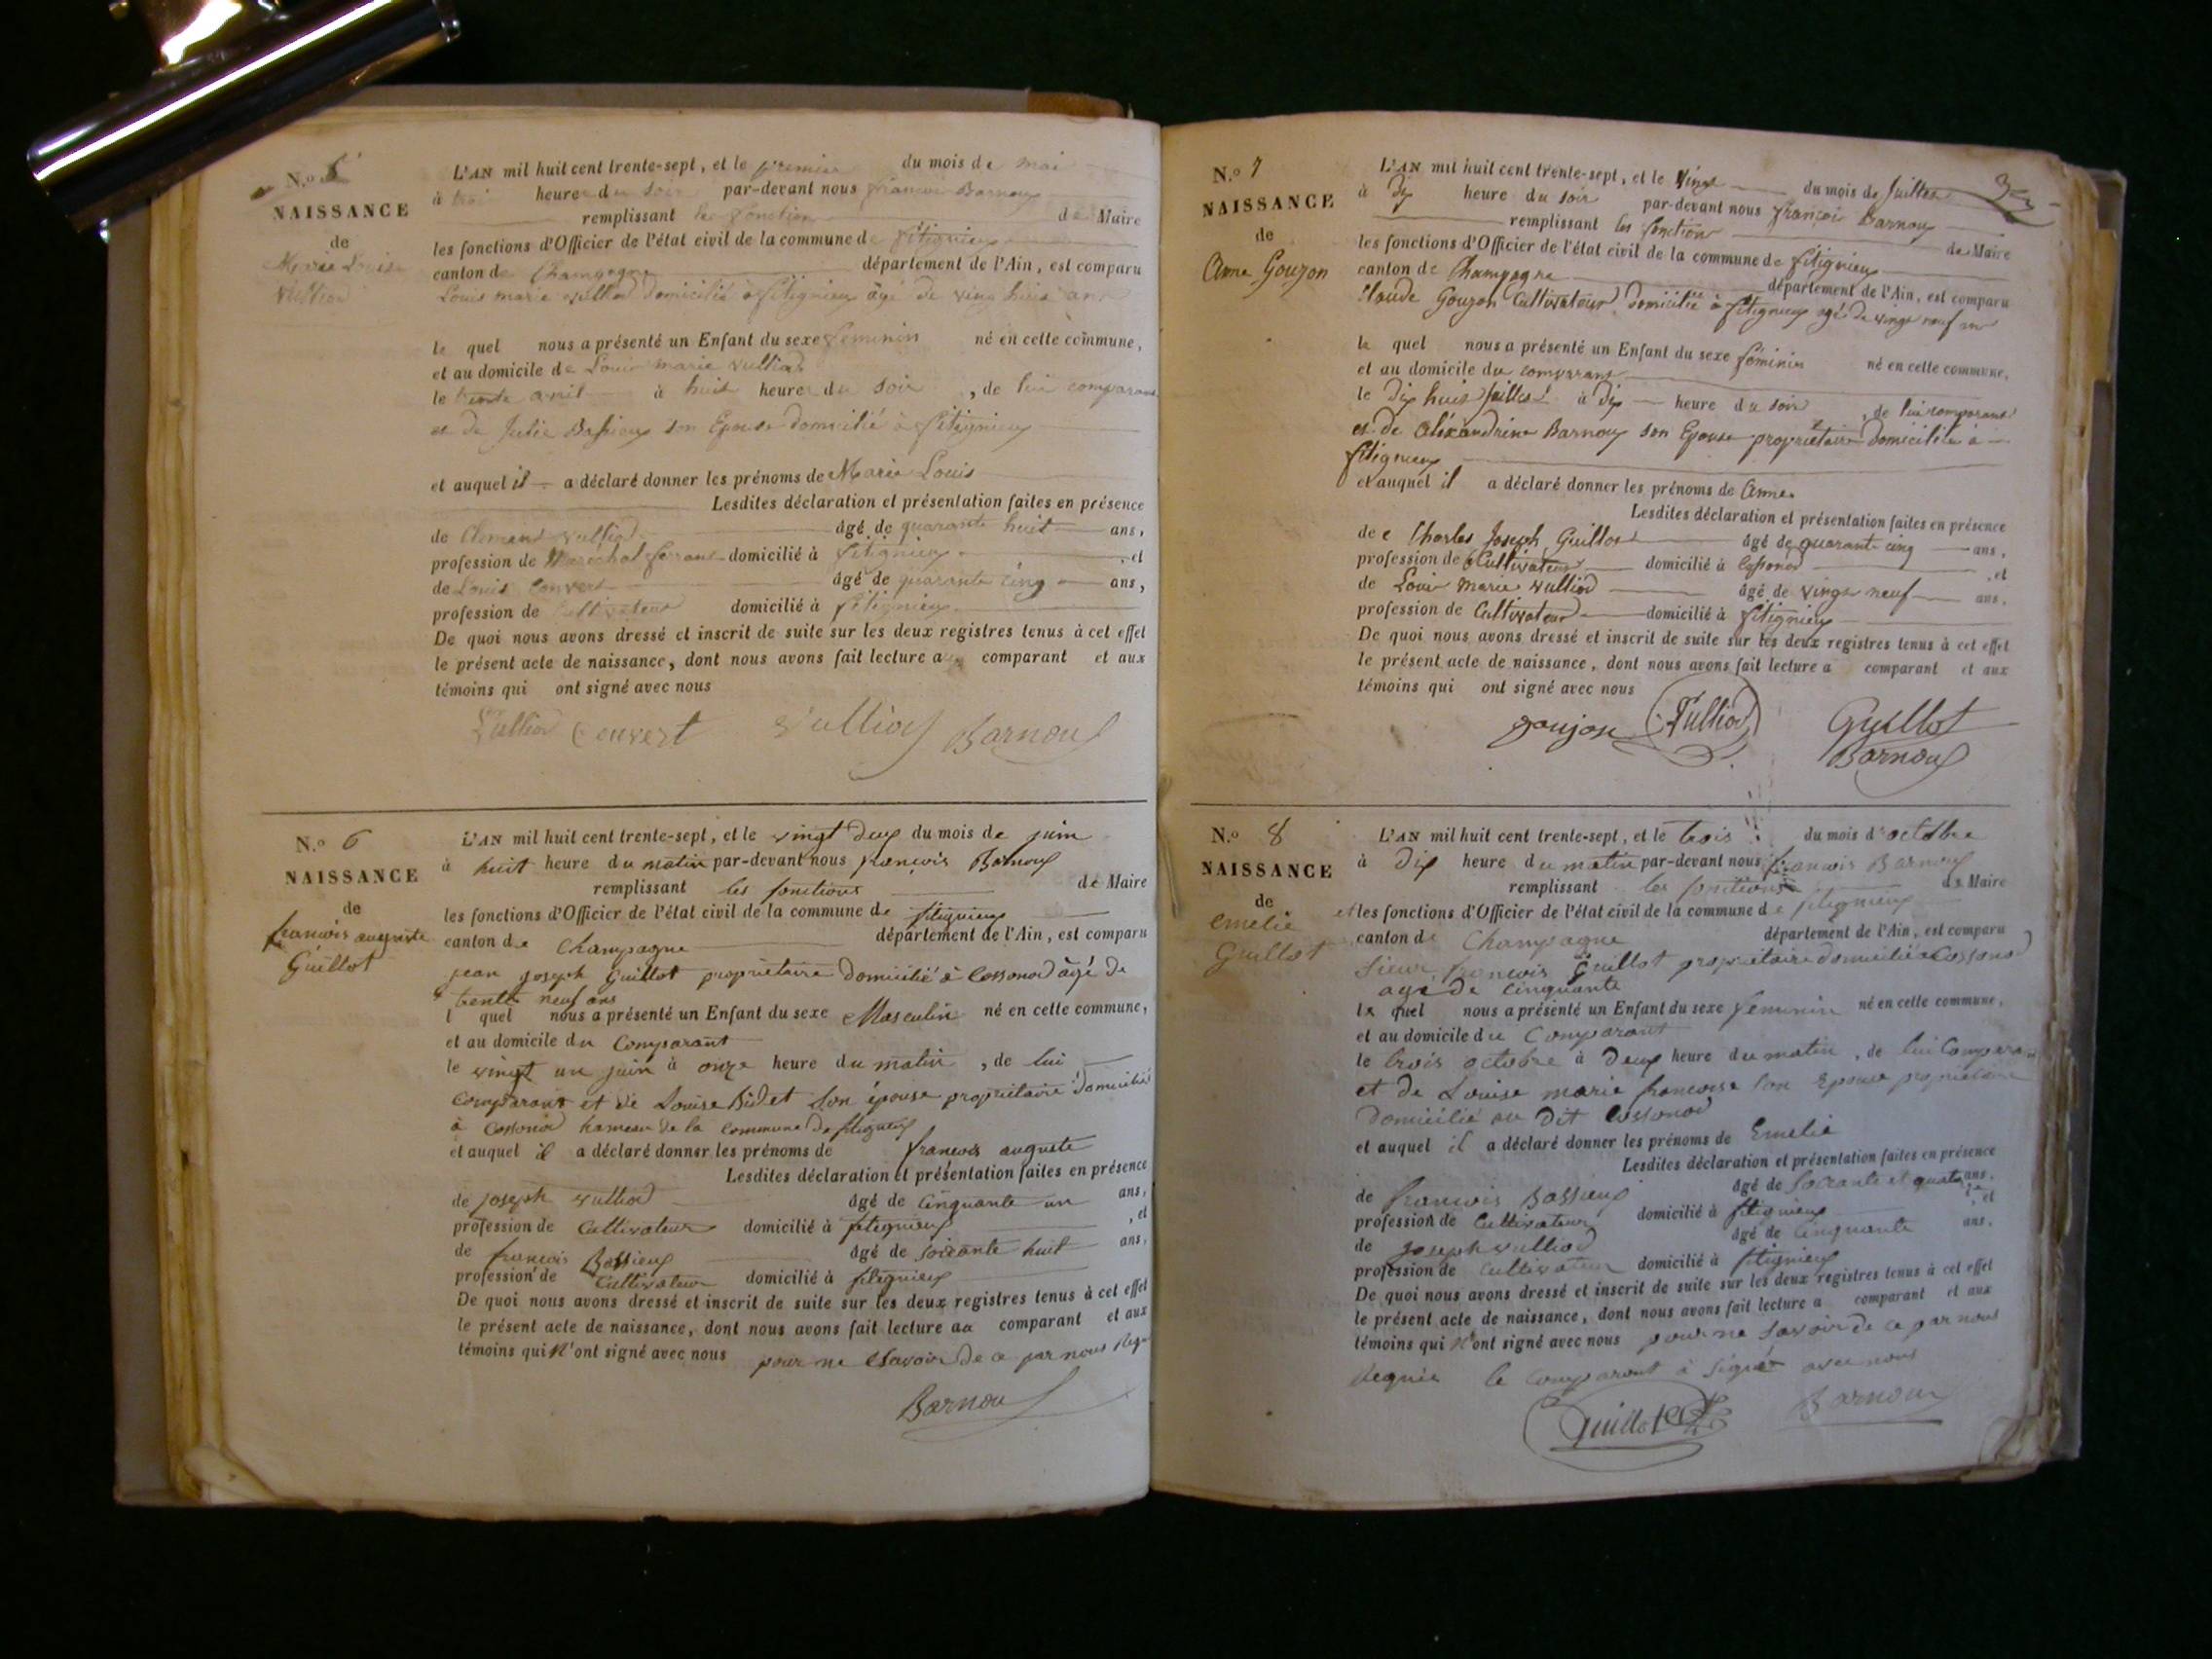 N.º 5
NAISSANCE
de
Marie Louise
Vulliod
L'AN mil huit cent trente-sept, et le premier du mois de mai
à trois heure du soir par-devant nous francois Barnoux
remplissant les fonction de Maire
les fonctions d'Officier de l'état civil de la commune de fitignieux
canton de Champagne département de l'Ain, est comparu
Louis marie vulliod domicilié à fitignieux âgé de ving huit ans
le quel nous a présenté un Enfant du sexe feminin né en cette commune,
et au domicile de Louis marie vulliod
le trente avril à huit heure du soir, de lui comparant
et de Julie Bassieux son Epouse domicilié à fitignieux
et auquel il a déclaré donner les prénoms de Marie Louis
Lesdites déclaration et présentation faites en présence
de Clemant vulliod âgé de quarante huit ans,
profession de Maréchal ferrant domicilié à fitignieux, et
de Louis Convert âgé de quarante cinq ans,
profession de Cultivateur domicilié à fitignieux
De quoi nous avons dressé et inscrit de suite sur les deux registres tenus à cet effet
le présent acte de naissance, dont nous avons fait lecture au comparant et aux
témoins qui ont signé avec nous
Vulliod Convert Vulliod Barnoux
N.º 6
NAISSANCE
de
francois auguste
Guillot
L'AN mil huit cent trente-sept, et le vingt deux du mois de juin
à huit heure du matin par-devant nous francois Barnoux
remplissant les fonctions de Maire
les fonctions d'Officier de l'état civil de la commune de fitignieux
canton de Champagne département de l'Ain, est comparu
jean joseph Guillot proprietaire domicilié à Cossonod âgé de
trente neuf ans
l quel nous a présenté un Enfant du sexe Masculin né en cette commune,
et au domicile du Comparant
le vingt un juin à onze heure du matin, de lui
comparant et de Louise Bidet son épouse proprietaire domicilié
à Cossonod hameau de la commune de fitignieux
et auquel il a déclaré donner les prénoms de francois auguste
Lesdites déclaration et présentation faites en présence
de joseph vulliod âgé de Cinquante un ans,
profession de Cultivateur domicilié à fitignieux, et
de francois Bassieux âgé de soixante huit ans,
profession de Cultivateur domicilié à fitignieux
De quoi nous avons dressé et inscrit de suite sur les deux registres tenus à cet effet
le présent acte de naissance, dont nous avons fait lecture au comparant et aux
témoins qui n'ont signé avec nous pour ne savoir de ce par nous Requi
Barnoux
N.º 7
NAISSANCE
de
Anne Goujon
L'AN mil huit cent trente-sept, et le vingt du mois de juillet
à dix heure du soir par-devant nous françois Barnoux
remplissant les fonction de Maire
les fonctions d'Officier de l'état civil de la commune de fitignieux
canton de Champagne département de l'Ain, est comparu
Claude Goujon Cultivateur domicilié à fitignieux agé de vingt neuf ans
le quel nous a présenté un Enfant du sexe féminin né en cette commune,
et au domicile du comparant
le dix huit juillet à dix heure du soir, de lui comparant
et de Aléxandrine Barnoux son Epouse proprietaire domicilié à
fitignieux
et auquel il a déclaré donner les prénoms de Anne
Lesdites déclaration et présentation faites en présence
de Charles Joseph Guillot âgé de quarante cinq ans,
profession de Cultivateur domicilié à Cossonod, et
de Louis Marie vulliod âgé de vingt neuf ans,
profession de Cultivateur domicilié à fitignieux
De quoi nous avons dressé et inscrit de suite sur les deux registres tenus à cet effet
le présent acte de naissance, dont nous avons fait lecture a comparant et aux
témoins qui ont signé avec nous
goujon Vulliod Guillot
Barnoux
N.º 8
NAISSANCE
de
Emelie
Guillot
L'AN mil huit cent trente-sept, et le trois du mois d'octobre
à dix heure du matin par-devant nous francois Barnoux
remplissant les fonctions de Maire
et les fonctions d'Officier de l'état civil de la commune de fitignieux
canton de Champagne département de l'Ain, est comparu
sieur francois Guillot proprietaire domicilié à Cossonod
agé de Cinquante
le quel nous a présenté un Enfant du sexe feminin né en cette commune,
et au domicile du Comparant
le trois octobre à deux heure du matin, de lui Comparant
et de Louise marie francoise son Epouse proprietaire
domicilié au dit Cossonod
et auquel il a déclaré donner les prénoms de Emelie
Lesdites déclaration et présentation faites en présence
de francois Bassieux âgé de soixante et quatre ans,
profession de Cultivateur domicilié à fitignieux, et
de joseph vulliod âgé de Cinquante ans,
profession de Cultivateur domicilié à fitignieux
De quoi nous avons dressé et inscrit de suite sur les deux registres tenus à cet effet
le présent acte de naissance, dont nous avons fait lecture a comparant et aux
témoins qui n'ont signé avec nous pour ne savoir de ce par nous
Requis le Comparant à signé avec nous
Guillot Barnoux